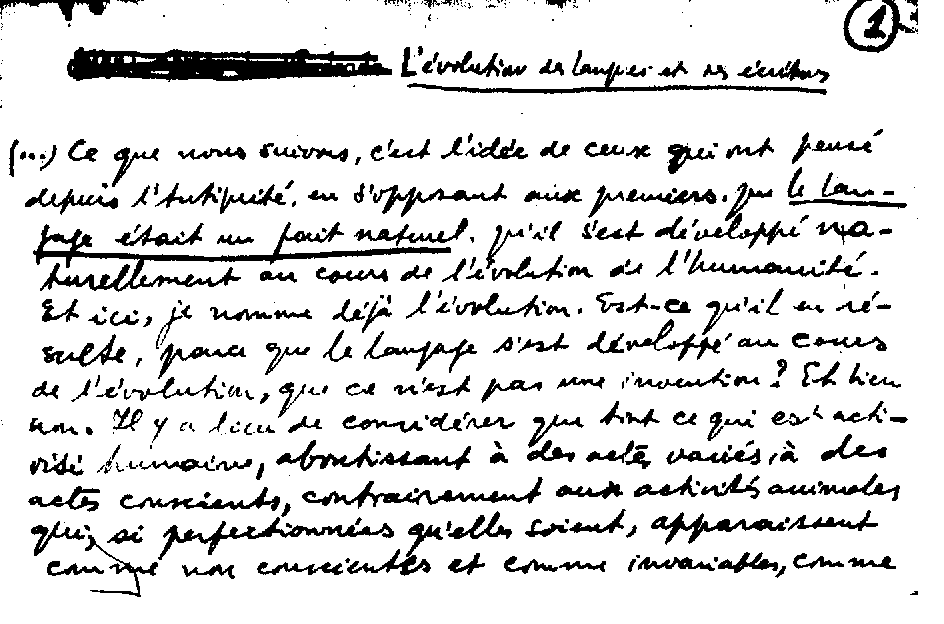 1
L'évolution des langues et des écritures
(...) Ce que nous suivons, c'est l'idée de ceux qui ont pensé
depuis l'Antiquité, en s'opposant aux premiers, que le lan-
gage était un fait naturel, qu'il s'est développé na-
turellement au cours de l'évolution de l'humanité.
Et ici, je nomme déjà l'évolution. Est-ce qu'il en ré-
sulte, parce que le langage s'est développé au cours
de l'évolution, que ce n'est pas une invention ? Et bien
non. Il y a lieu de considérer que tout ce qui est acti-
vité humaine, aboutissant à des actes variés, à des
actes conscients, contrairement aux activités animales
qui, si perfectionnées qu'elles soient, apparaissent
comme non conscientes et comme invariables, comme